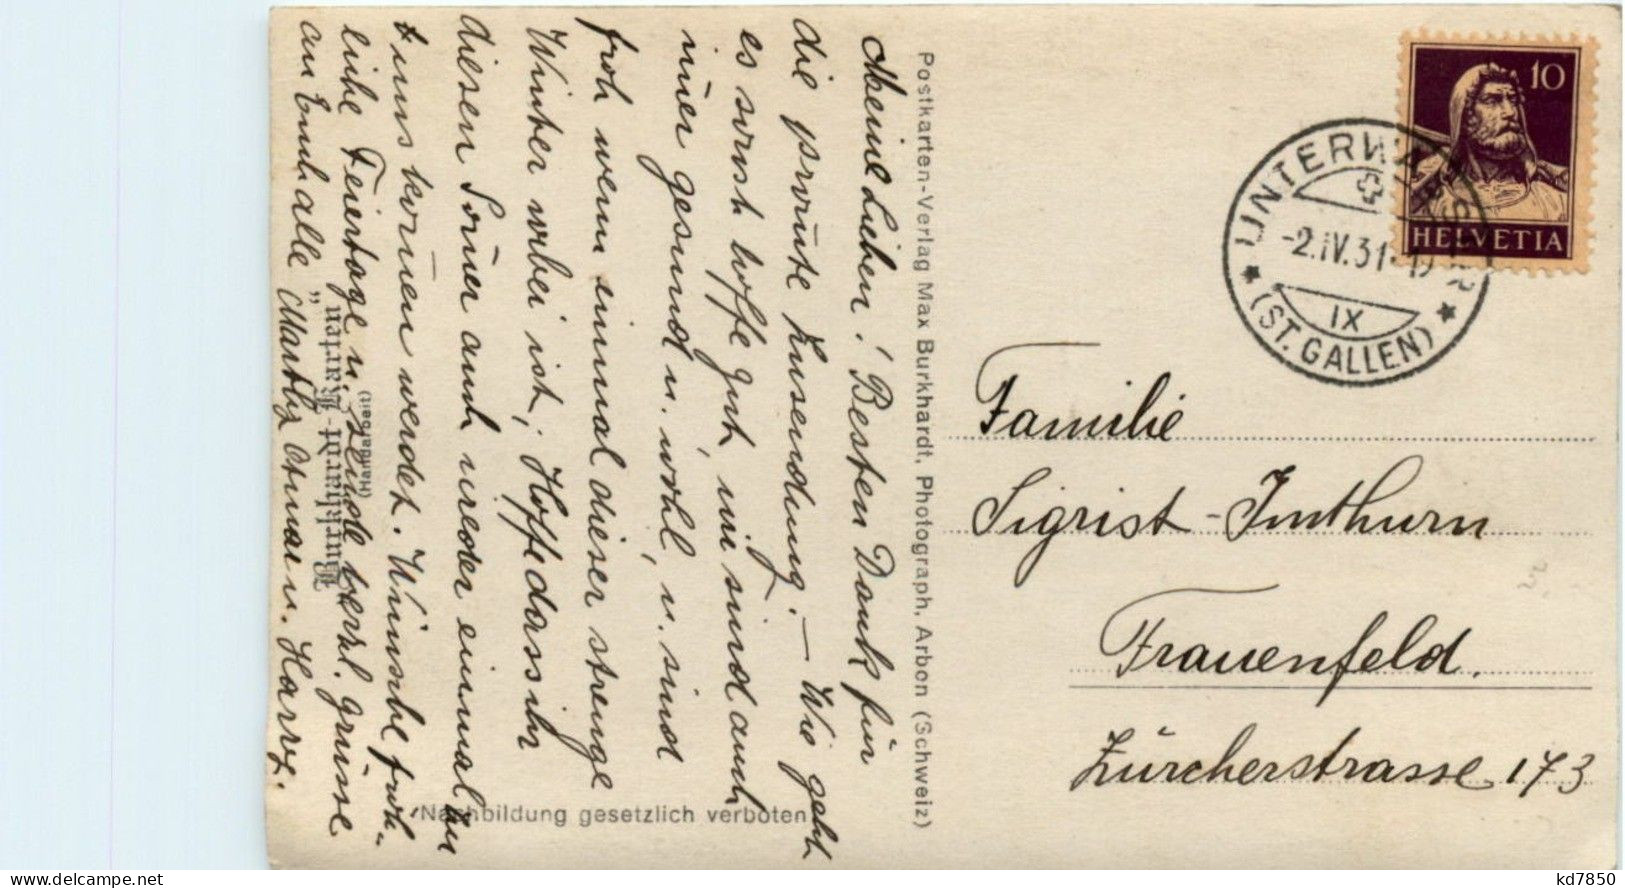 Meine Lieben! Besten Dank für
die prompte Zusendung. – Wie geht
es sonst hoffe gut, wir sind auch
immer gesund u. wohl, u. sind
froh wenn einmal dieser strenge
Winter vorbei ist, Hoffe dass ihr
diesen Sommer auch wieder einmal zu
uns kommen werdet. Wünsche fröh-
liche Feiertage u. sende herzl. Grüsse
an Euch alle
Postkarten-Verlag Max Burkhardt, Photograph, Arbon (Schweiz)
Burkhardt-Karten"
Nachbildung gesetzlich verboten
10
HELVETIA
UNTERWASSER
-2.IV.31
IX
(ST. GALLEN)
Familie
Sigrist-Imthurn
Frauenfeld.
Zürcherstrasse 173
kd7850